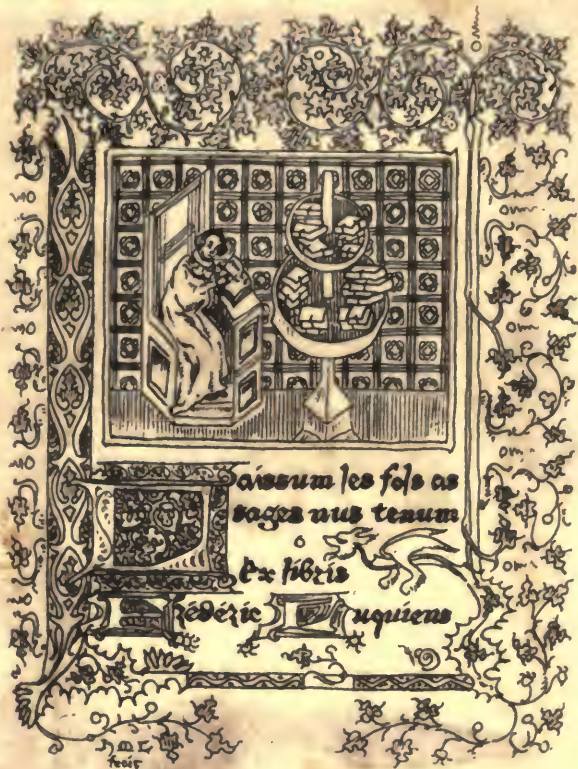 Laissum les fols as
sages nus tenum
Ex libris
Frédéric Luquiens
HML
fecit